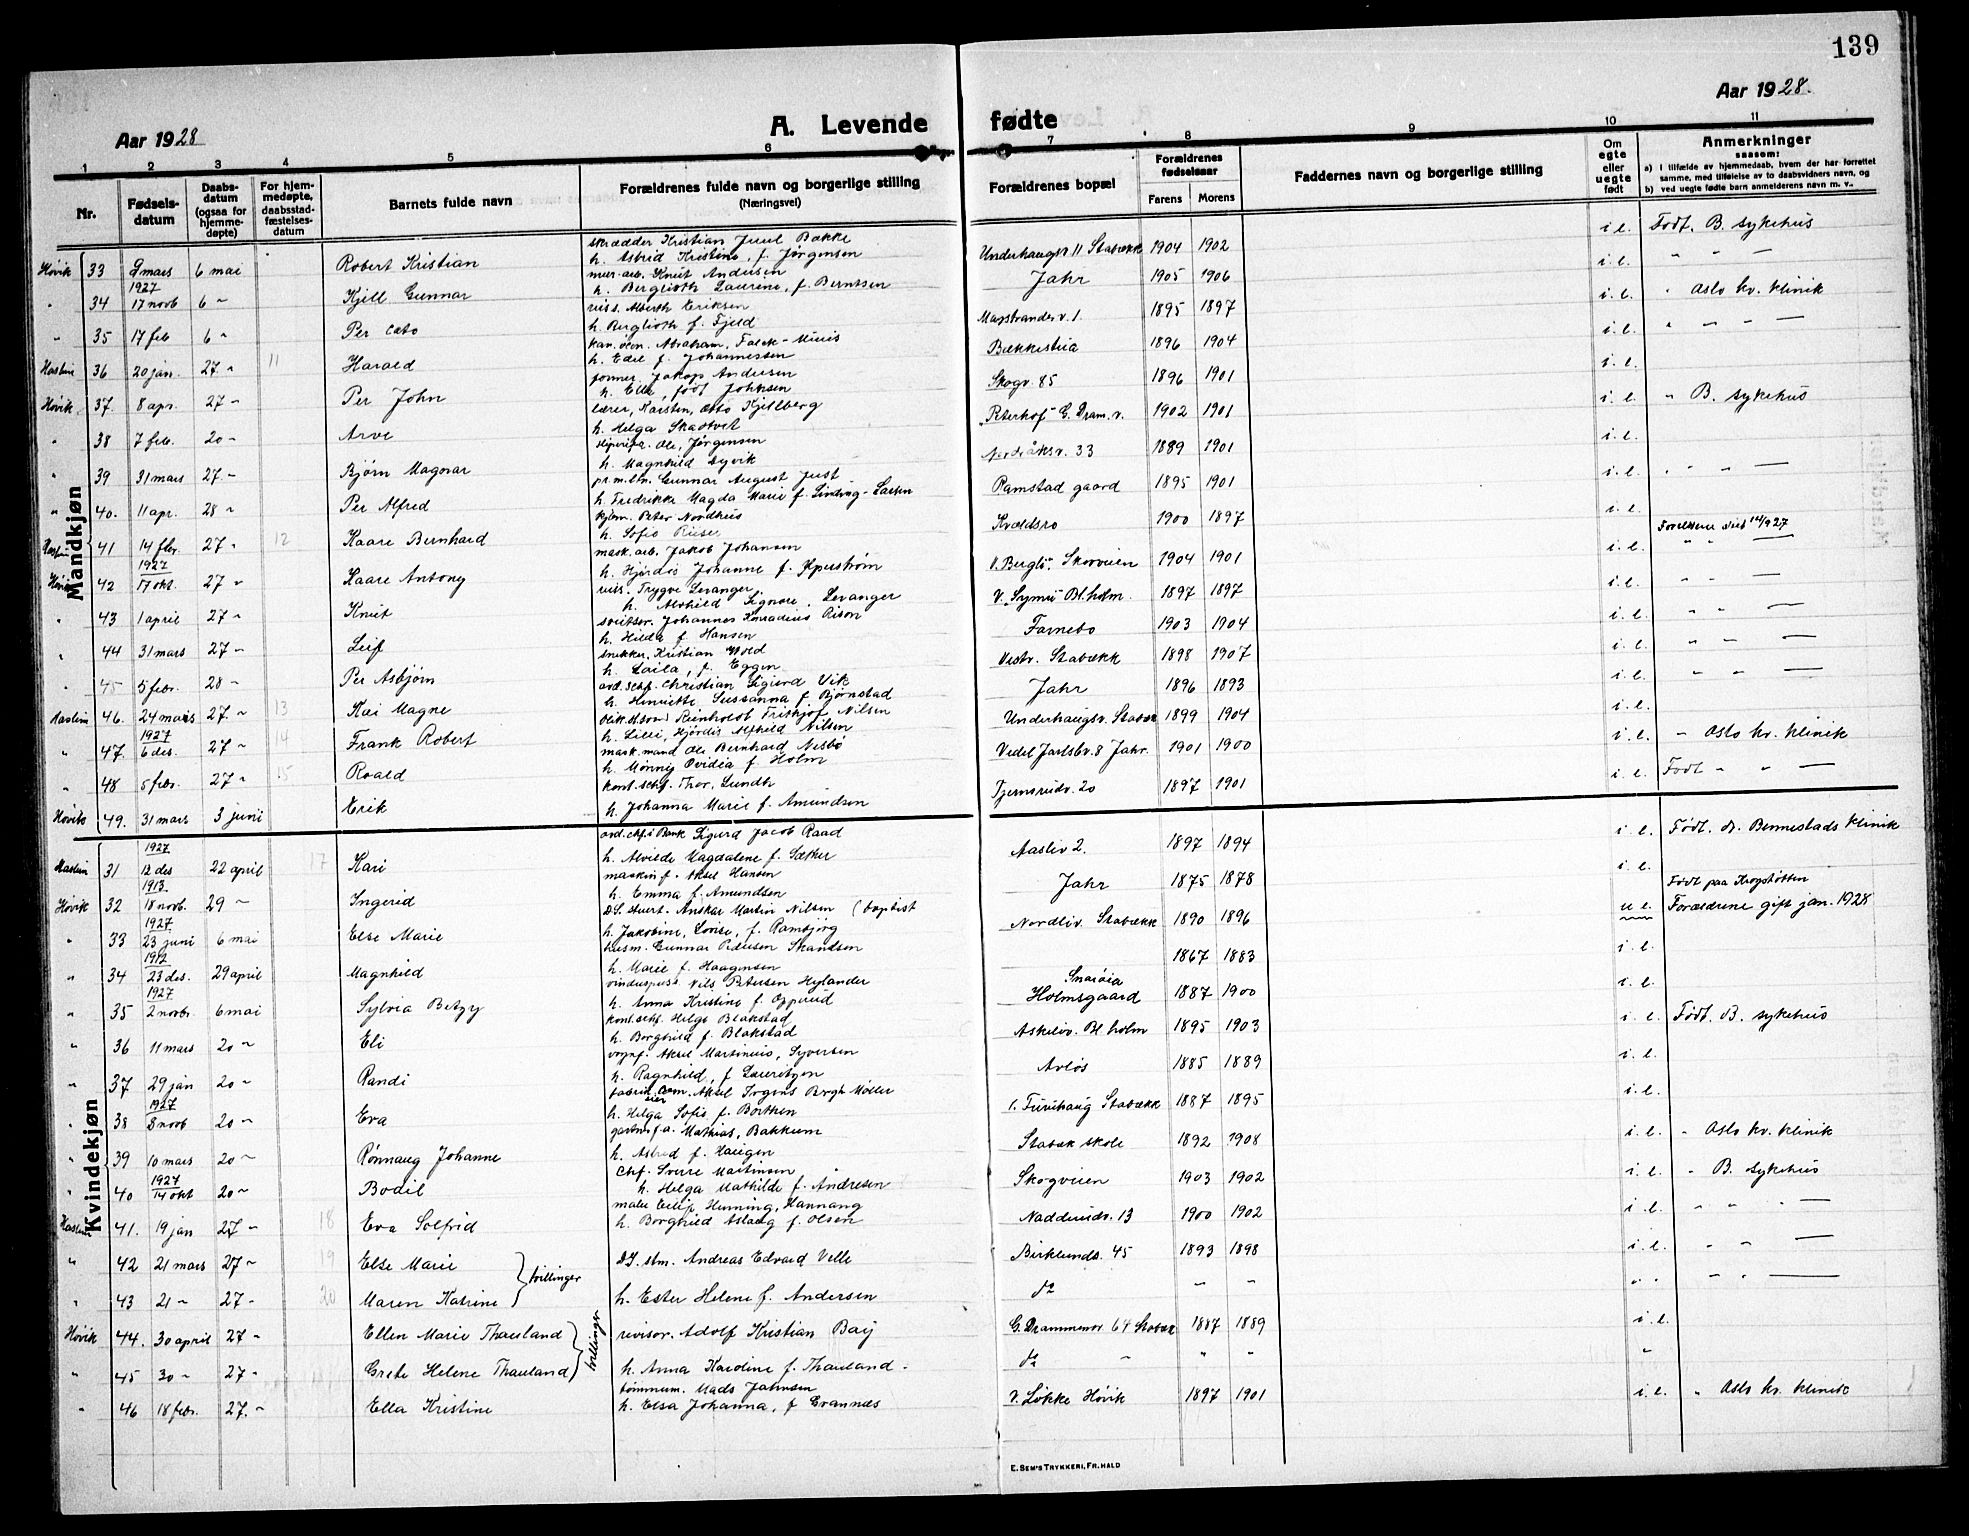 139
Aar 1928
A. Levende fødte
Aar 1928.
1 2 3 4 5 6 7 8 9 10 11
Nr.
Fødsels-
datum
Daabs-
datum
(ogsaa for
hjemme-
døpte)
For hjem-
medøpte,
daabsstad-
fæstelses-
datum
Barnets fulde navn
Forældrenes fulde navn og borgerlige stilling
(Næringsvei)
Forældrenes bopæl
Forældrenes
fødselsaar
Farens Morens
Faddernes navn og borgerlige stilling
Om
egte
eller
uegte
født
Anmerkninger
saasom:
a) I tilfælde av hjemmedaab, hvem der har forrettet
samme, med tilføielse av to daabsvidners navn, og
b) ved uegte fødte barn anmelderens navn m. v.
Mandkjøn
skrædder Kristian Juul Bakke
Høvik 33 9 mars 6 mai Robert Kristian h. Astrid Kristine, f. Jørgensen Underhaugsv 11 Stabækk 1904 1902 i e. Født. B. sykehus
mur. arb. Knut Andersen
" 34 1927 17 novb 6 " Kjell Gunnar h. Bergljoth Laurene, f. Berntsen Jahr 1905 1906 i. e. " " —
Alberth Eriksen
" 35 17 feb 6 " Per Cato h. Berglioth f. Fjeld 1895 1897 i. e. " Aslo kv. klinik
Abraham, Falck-Muus
Haslum 36 20 jan. 27 " 11 Harald h. Edel f. Johannessen Bækkestua 1896 1904 i. e. " " " —
former. Jakop Andersen
Høvik 37. 8 apr. 27 " Per John h. Ella, født Johnsen Skogv. 85 1896 1901 i. e.
lærer, Karsten, Otto Kjellberg
" 38 7 feb. 20 " Arve h. Helga Skaatvet "Peterhof" G. Dram. v. 1902 1901 i. e. " B. sykehus
Ole, Jørgensen
" 39 31 mars 27 " Bjørn Magnar h. Magnhild Syvik 33 1889 1901 i. e.
Gunnar August Just
" 40. 11 apr. 28 " Per Alfred h. Fredrikke Magda Marie f. Lindvig-Larsen Ramstad gaard 1895 1901 i. e. " " —
kjøm. Peter Nordhus
41 14 fbr. 27 " 12 Kaare Bernhard h. Sofie Riise Kvældsro 1900 1897 i. e.
mask. arb. Jakob Johansen
Høvik 42 1927 11 okt. 27 " Kaare Antony h. Hjørdis Johanne f. V. "Bergli" Skovveien 1904 1901 i. e. " " —
Trygve Levanger,
" 43 1 april 27 " Knut h. Alvhild Signore, Levanger V. "Symre" Bl.holm. 1897 1897 i. e. " " —
Johannes Konradius Rison
" 44 31 mars 27 " Leif h. Hilda f. Hansen Farnebo 1903 1904 i. e. " " —
snekker, Kristian Wold
" 45 5 febr. 28 " Per Asbjørn h. Laila, f. Eggen Vestv. Stabækk 1898 1907 i. e. " " —
Christian Sigurd Vik
Haslum 46. 24 mars 27. " 13 Kai Magne h. Henriette Sussanna f. Bjørnstad Jahr 1896 1893 i. e. " " —
Reinholdt Frithjof Nilsen
" 47. 1927 6 des. 27 " 14 Frank Robert h. Lilli, Hjørdis Alfhild Nilsen Underhaugsv. Stabæk 1899 1904 i. e.
mask. mand Ole Bernhard Nesbø
" 48 5 febr. 27 " 15 Roald h. Mønnig Ovidia f. Holm Vedel Jarlsbv. 8 Jahr. 1901 1900 i. e. " Oslo kv. klinik
kont. schf. Thor. Lundth
Høvik 49. 31 mars 3 juni Erik h. Johanna Marie f. Amundsen Tjernsrudv. 20 1897 1901 i. e. Født " " —
Kvindekjøn
Sigurd Jacob Raad
Haslum 31 1927 12 des 22 april 17 Kari h. Alvilde Magdalene f. Sæther Aasliv 2. 1897 1894 i. e. Født. dr. Bennestads klinik
maskinf. Aksel Hansen
Høvik 32 1913 18 novb. 29 " Ingerid h. Emma f. Amundsen Jahr 1875 1878 i. e. Født paa Krogstøtten
Anskar Martin Nilsen (baptist
" 33 1927 23 juni 6 mai Else Marie h. Jakobine, Lovise, f. Rambjørg Nordliv. Stabækk 1890 1896 u e. Forældrene gift jan. 1928
husm. Gunnar Petersen Skandsen
" 34 1912 23 des. 29 april Magnhild h. Marie f. Haagensen 1867 1883 i. e.
vinduspuss. Nils Petersen Hylander
" 35 1927 2 novbr. 6 mai Sylvia Betzy h. Anna Kristine f. Opperud Snarøia Holmsgaard 1887 1900 i. e.
kont. schf. Helge Blakstad
" 36 11 mars 20 " Eli h. Borghild f. Blakstad Askeliv. Bl. holm 1895 1903 i. e. Født. B. sykehus
vognf. Aksel Martinius, Syversen
" 37 29 jan 20 " Randi h. Ragnhild, f. Lauritzen Avløs 1885 1889 i. e.
Aksel Irgens Bergh Møller
" 38 1927 8 novb 20 " Eva h. Helga Sofie f. Borthen Furuhaug Stabækk 1887 1895 i. e.
Mathias, Bakkum
" 39 10 mars 20 " Rønnaug Johanne h. Astrid f. Haugen Stabæk skole 1892 1908 i. e. " Oslo kv. klinik
Chf. Sverre Martinsen
" 40 1927 14 okt 20 " Bodil h. Helga Mathilde f. Andresen Skogveien 1903 1902 i. e. " B. sykehus
Eilif Henning, Hannang
Haslum 41. 19 jan 27 " 18 Eva Solfrid h. Borghild Aslaug f. Olsen Nadderudv. 13 1900 1902 i. e. " " —
" 42 21 mars 27 " 19 Else Marie tvillinger Andreas Edvard Velle Birklunds. 45 1893 1898 i. e. " " —
" 43 21 " 27 " 20 Maren Katrine h. Ester Helene f. Andersen do " " " " " " —
Høvik 44. 30 april 27 " Ellen Marie Thauland tvillinger revisor. Adolf Kristian Bay G. Drammensv 64 Stabæk 1887 1889 i. e.
" 45 30 " 27 " Grete Helene Thauland h. Anna Karoline f. Thauland do " " " "
tømmerm. Mads Jahnsen
" 46 18 febr. 27. " Ella Kristine h. Elsa Johanna, f. Grannæs V. Løkke Høvik 1897 1901 i. e. " Oslo kv. klinik
E. SEM'S TRYKKERI, FR.HALD